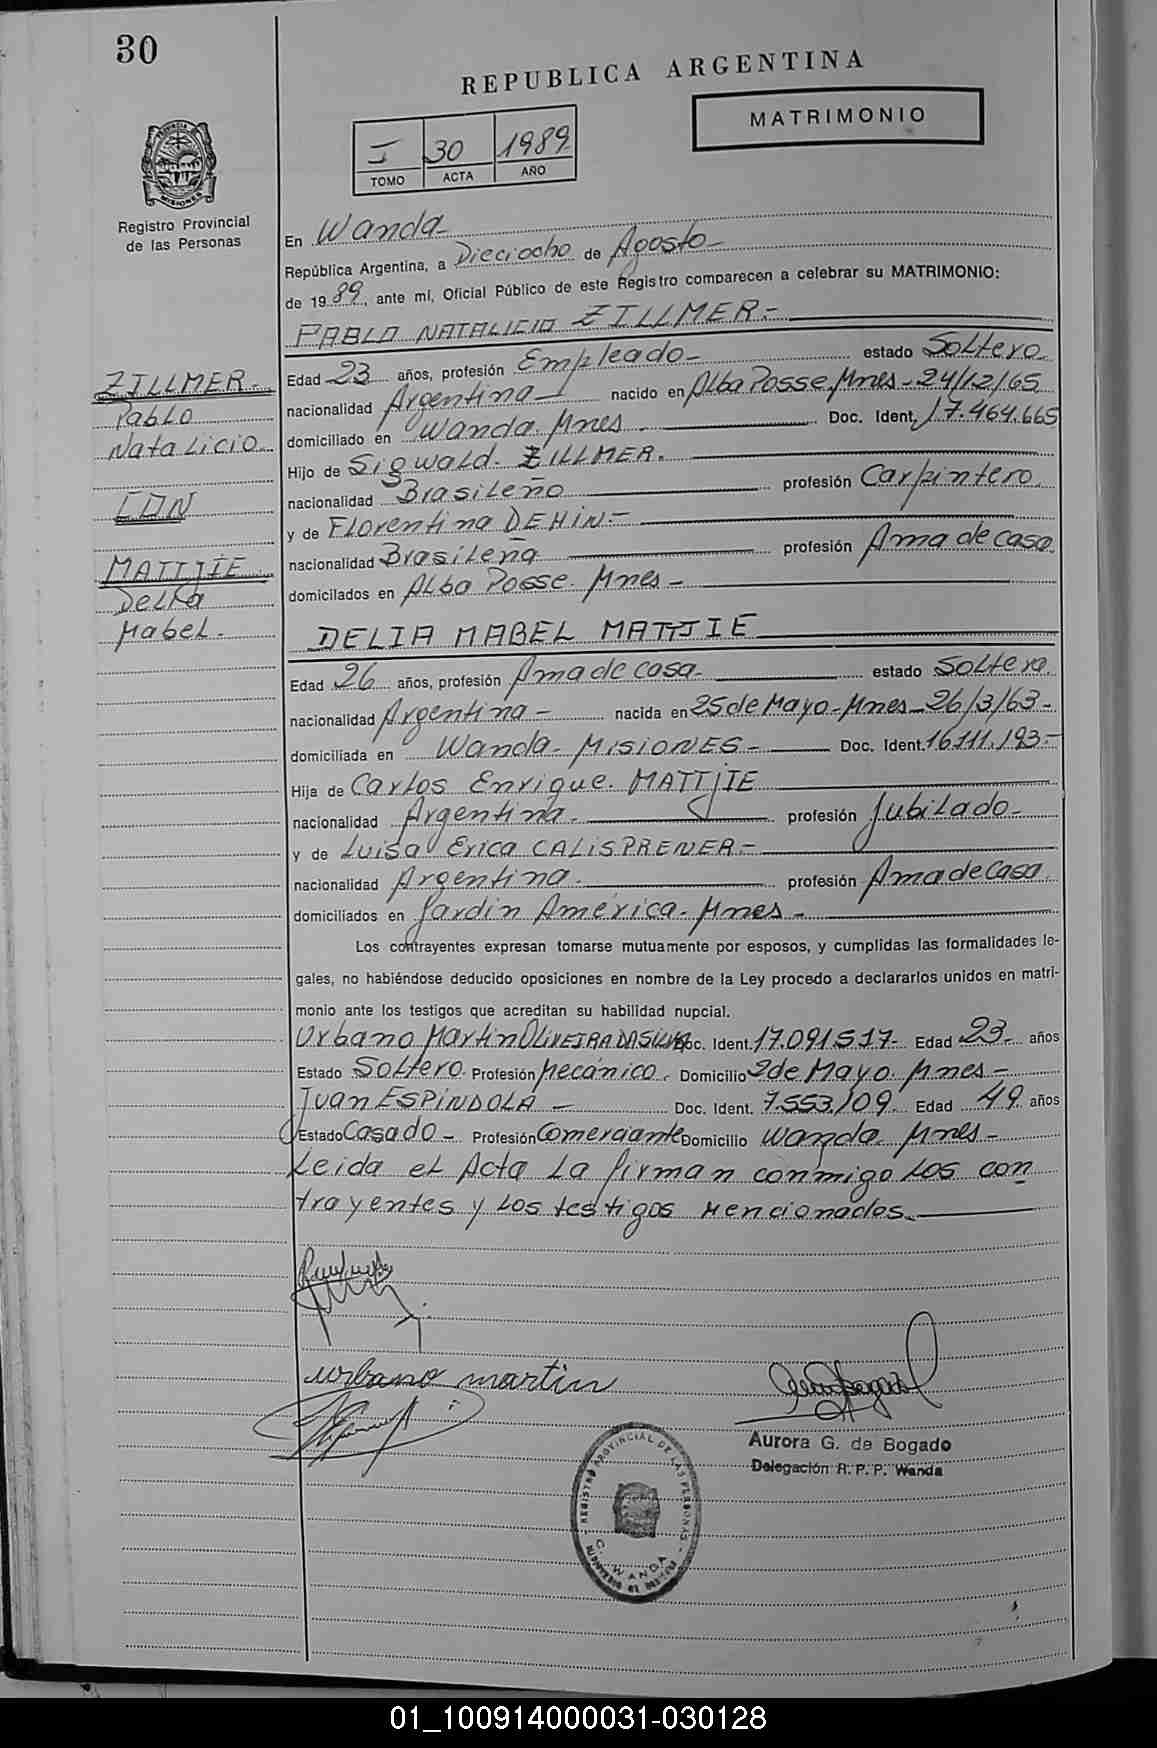 30
REPUBLICA ARGENTINA
MATRIMONIO
I 30 1989
TOMO ACTA AÑO
PROVINCIA DE MISIONES
Registro Provincial
de las Personas
En Wanda-
República Argentina, a Dieciocho de Agosto-
de 1989, ante mí, Oficial Público de este Registro comparecen a celebrar su MATRIMONIO:
PABLO NATALICIO ZILLMER.-
Edad 23 años, profesión Empleado- estado Soltero.
nacionalidad Argentina- nacido en Alba Posse Mnes-24/12/65
domiciliado en Wanda. Mnes. Doc. Ident. 17.464.665
Hijo de Sigwald. ZILLMER.
nacionalidad Brasileño profesión Carpintero.
y de Florentina DEHIN.-
nacionalidad Brasileña profesión Ama de casa.
domicilados en Alba Posse. Mnes-
ZILLMER.-
Pablo
Natalicio.
CON
MATTJIE.
Delia
Mabel.
DELIA MABEL MATTJIE
Edad 26 años, profesión Ama de casa. estado Soltera.
nacionalidad Argentina- nacida en 25 de Mayo-Mnes-26/3/63-
domiciliada en Wanda- MISIONES- Doc. Ident. 16.111.193-
Hija de Carlos Enrique. MATTJIE
nacionalidad Argentina. profesión Jubilado-
y de Luisa Erica CALISPRENER.-
nacionalidad Argentina. profesión Ama de Casa.
domiciliados en Jardin América- Mnes-
Los contrayentes expresan tomarse mutuamente por esposos, y cumplidas las formalidades le-
gales, no habiéndose deducido oposiciones en nombre de la Ley procedo a declararlos unidos en matri-
monio ante los testigos que acreditan su habilidad nupcial.
Urbano Martin OLIVEIRA DA SILVA Doc. Ident. 17.091517- Edad 23- años
Estado Soltero. Profesión Mecánico. Domicilio 2 de Mayo. Mnes-
Juan ESPINDOLA- Doc. Ident. 7.553.109. Edad 49 años
Estado Casado- Profesión Comerciante Domicilio Wanda. Mnes-
Leida el Acta la firman conmigo los con
trayentes y los testigos mencionados.
urbano martin
Aurora G. de Bogado
Delegación R. P. P. Wanda
REGISTRO PROVINCIAL DE LAS PERSONAS
WANDA
01_100914000031-030128